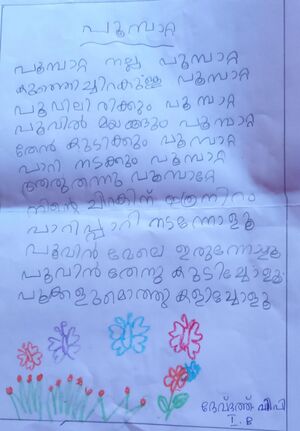 പൂമ്പാറ്റ
പൂമ്പാറ്റ നല്ല പൂമ്പാറ്റ
കുഞ്ഞിച്ചിറകുള്ള പൂമ്പാറ്റ
പൂവിലിരിക്കും പൂമ്പാറ്റ
പൂവിൽ മയങ്ങും പൂമ്പാറ്റ
തേൻ കുടിക്കും പൂമ്പാറ്റ
പാറി നടക്കും പൂമ്പാറ്റ
പൂമ്പാറ്റേ
നിന്റെ ചിറകിന്
പാറിപ്പാറി നടന്നോളൂ
പൂവിൻ മേലെ ഇരുന്നോളൂ
പൂവിൻ തേനു കുടിച്ചോളൂ
പൂക്കളുമൊത്തു കളിച്ചോളൂ
ദേവ്ദത്ത് വി പി
I B